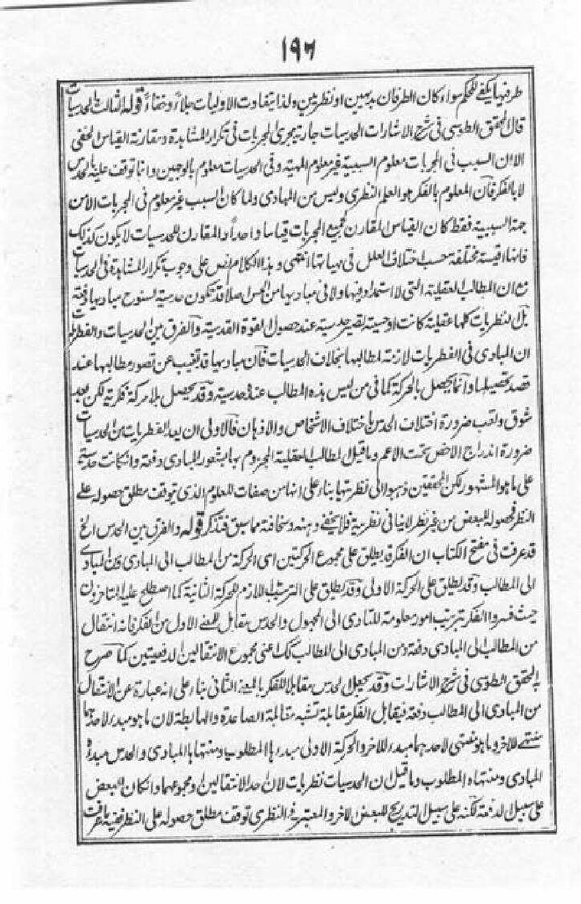 ١٩٦
طرفيها يكفى للحكم سواء كان الطرفان بديهيين او نظريين ولذا يتفاوت الاوليات جلاءً وخفاءً قوله الثالث الحدسيات
قال المحقق الطوسى فى شرح الاشارات الحدسيات جارية مجرى المجربات فى تكرار المشاهدة ومقارنة القياس الخفى
الا ان السبب فى المجربات معلوم السببية غير معلوم المهية وفى الحدسيات معلوم بالوجهين وانما توقف عليه بالحدس
لا بالفكر فان المعلوم بالفكر هو العلم النظرى وليس من المبادى ولما كان السبب غير معلوم فى المجربات الا من
جهة السببية فقط كان القياس المقارن لجميع المجربات قياسا واحدا والمقارن للحدسيات لا يكون كذلك
فانها اقيسة مختلفة حسب اختلاف العلل فى مهياتها انتهى وهذا الكلام نص على وجوب تكرار المشاهدة فى الحدسيات
مع ان المطالب العقلية التى لا استمداد فيها ولا فى مباديها من الحس اصلا قد تكون حدسية لسنوح مباديها دفعة
بل النظريات كلها عقلية كانت او حسية تصير حدسية عند حصول القوة القدسية والفرق بين الحدسيات والفطريات
ان المبادى فى الفطريات لازمة لمطالبها بخلاف الحدسيات فان مباديها قد تغيب عن تصور مطالبها عند
قصد تحصيلها وانما يحصل بالحركة كما فى من ليس هذه المطالب عنده حدسية وقد يحصل بلا حركة فكرية لكن بعد
شوق وتعب ضرورة اختلاف الحدس باختلاف الاشخاص والاذهان فالاولى ان يعد الفطريات من الحدسيات
ضرورة اندراج الاخص تحت الاعم وما قيل المطالب العقلية المجزوم بها بشعور المبادى دفعة وان كانت حدسية
على ما هو المشهور لكن المحققين ذهبوا الى نظريتها بناء على انها من صفات المعلوم الذى توقف مطلق حصوله على
النظر فحصوله للبعض من غير نظر لا ينافى نظريته فلا يخفى وهنه وسخافته مما سبق فتذكر قوله والفرق بين الحدس الخ
قد عرفت فى مفتح الكتاب ان الفكر يطلق على مجموع الحركتين اى الحركة من المطالب الى المبادى ومن المبادى
الى المطالب وقد يطلق على الحركة الاولى وقد يطلق على الترتيب اللازم للحركة الثانية كما اصطلح عليه المتاخرون
حيث فسروا الفكر بترتيب امور معلومة للتادى الى المجهول والحدس مقابل للمعنى الاول من الفكر فانه انتقال
من المطالب الى المبادى دفعة ومن المبادى الى المطالب كذلك اعنى مجموع الانتقالين الدفعيتين كما صرح
به المحقق الطوسى فى شرح الاشارات وقد يجعل الحدس مقابلا للفكر بالمعنى الثانى بناء على انه عبارة عن الانتقال
من المبادى الى المطالب دفعة فيقابل الفكر مقابلة تشبه مقابلة الصاعدة والهابطة لان ما هو مبدء لاحدهما
منتهى للاخر وما هو منتهى لاحدهما مبدء للاخر والحركة الاولى مبدءها المطلوب ومنتهاها المبادى والحدس مبدءه
المبادى ومنتهاه المطلوب وما قيل ان الحدسيات نظريات لان احد الانتقالين او مجموعهما وان كان لبعض
على سبيل الدفعة لكنه على سبيل التدريج للبعض الاخر والمعتبر فى النظرى توقف مطلق حصوله على النظر ففيه ما عرفت